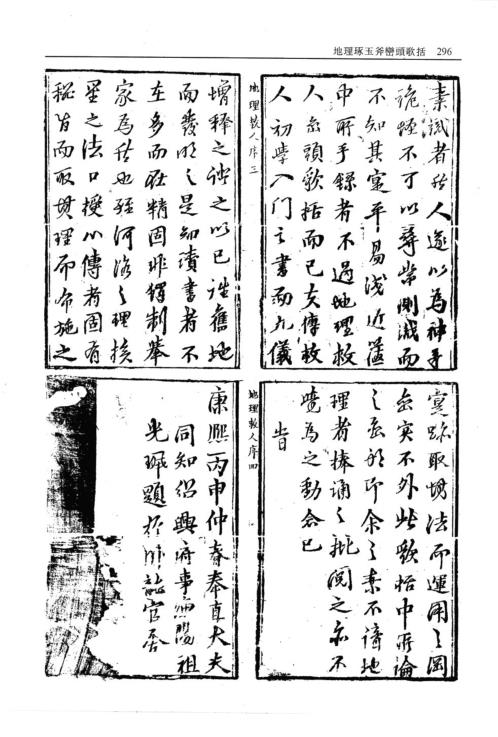 地理琢玉斧巒頭歌括 296
素識者於人遂以為神手
詭不可以尋常測識而
不知其寔平易淺近篋
中所手錄者不過地理救
人巒頭歌括而已夫傳救
人初學入門之書而九儀
地理救人序三
增釋之之以已舊地
而發明之是知讀書者不
在多而在精固非獨制舉
家為然也河洛之理挨
星之法口授心傳者固有
秘旨而取理而布施之
寔跡取法而運用之岡
巒實不外此歌括中所論
之巒形即余之素不諳地
理者捧誦之批閱之亦不
覺為之動念已
旹
地理救人序四
康熙丙申仲春奉直大夫
同知紹興府事陽祖
光珮題於卧龍官舍